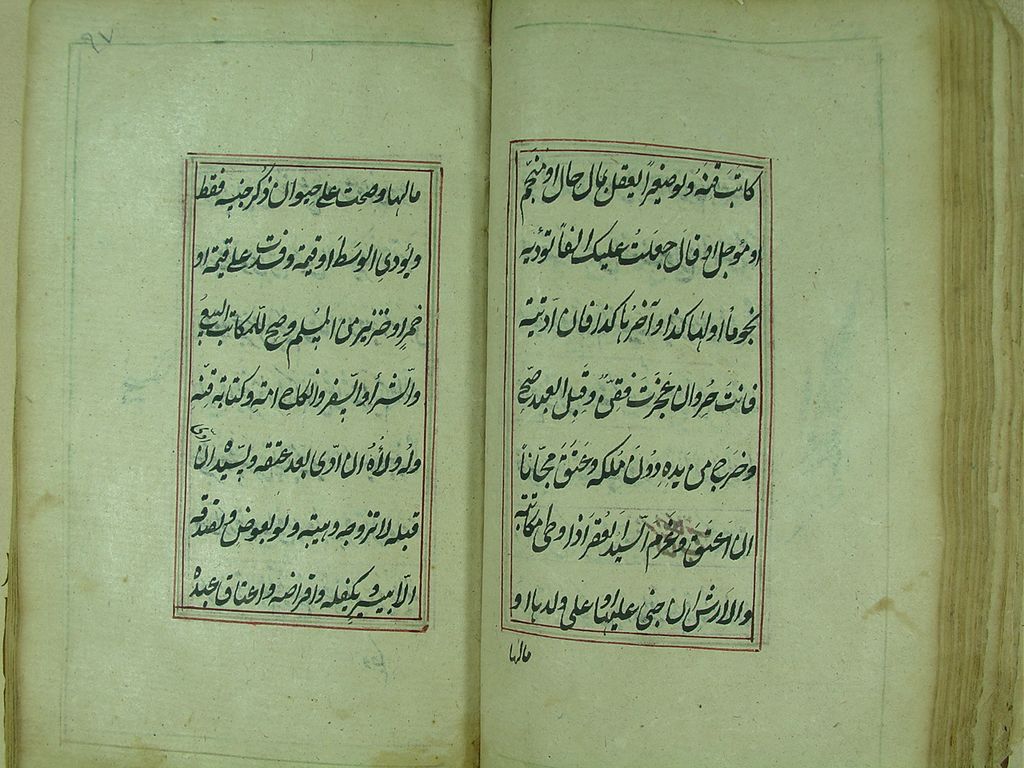 كاتب قنه ولو صغيراً يعقل بمال حال او منجم
او مؤجل او قال جعلت عليك الفاً تؤديه
نجوماً اولها كذا وآخرها كذا فان اديته
فانت حر وان عجزت فقنٌ وقبل العبد صح
وخرج من يده دون ملكه وعتق مجاناً
ان اعتق وغرم السيد العقر اذا وطى مكاتبته
والارش ان جنى عليها او على ولدها او
مالها
٩٧
مالها وصحت على حيوان ذكر جنسه فقط
ويؤدى الوسط او قيمته وفسدت على قيمته او
خمر او خنزير من المسلم وصح للمكاتب البيع
والشراء والسفر وانكاح امته وكتابة قنه
وله ولاؤه ان ادى بعد عتقه ولسيده ان
قبله لا تزوجه وهبته ولو بعوض وتصدقه
الا بيسير وتكفله واقراضه واعتاق عبده